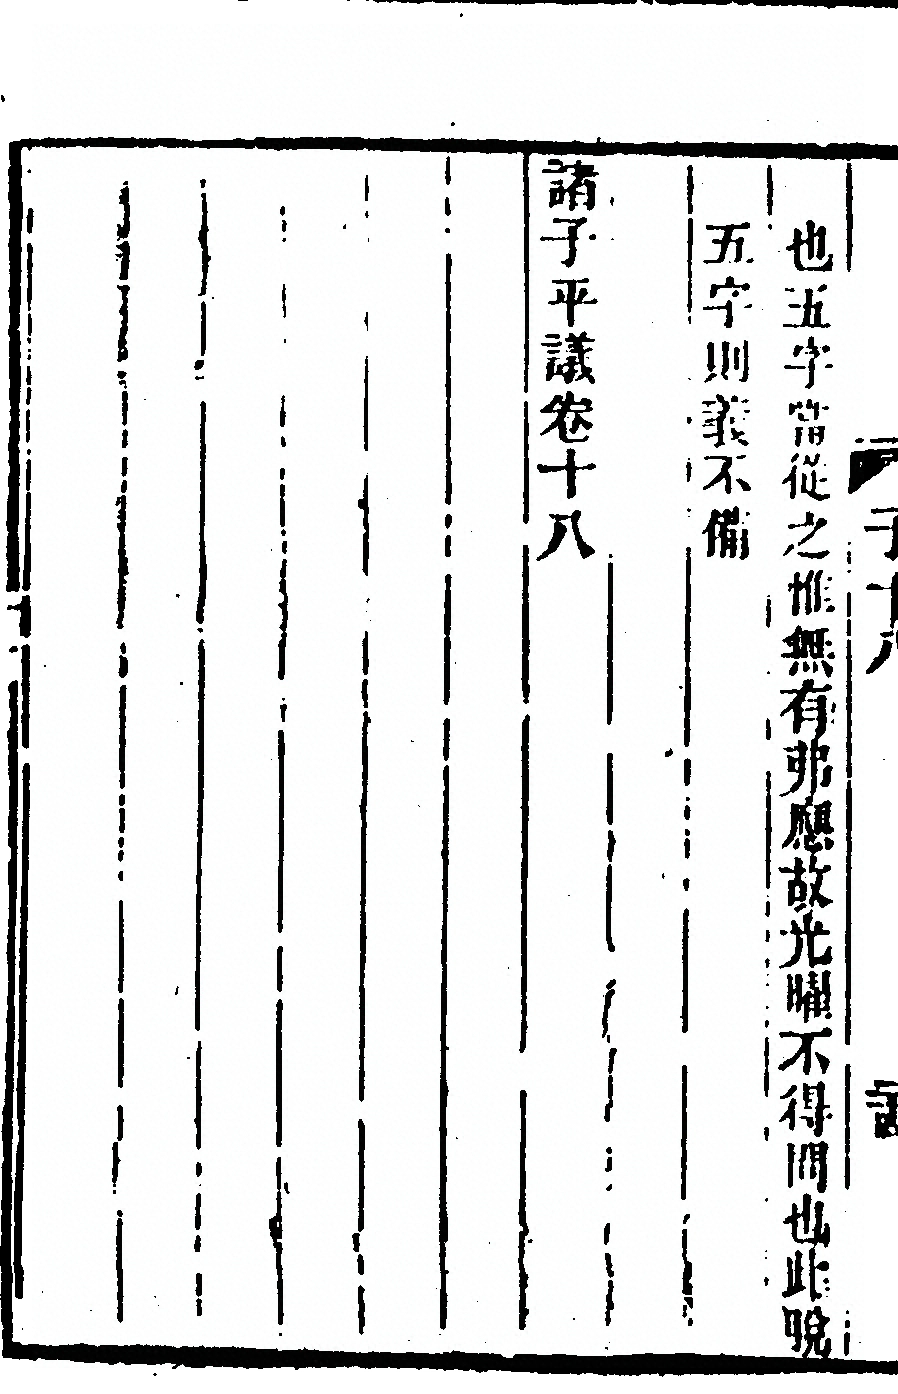 也五字當從之惟無有弗應故光曜不得問也此脫
五字則義不備
諸子平議卷十八
子十八